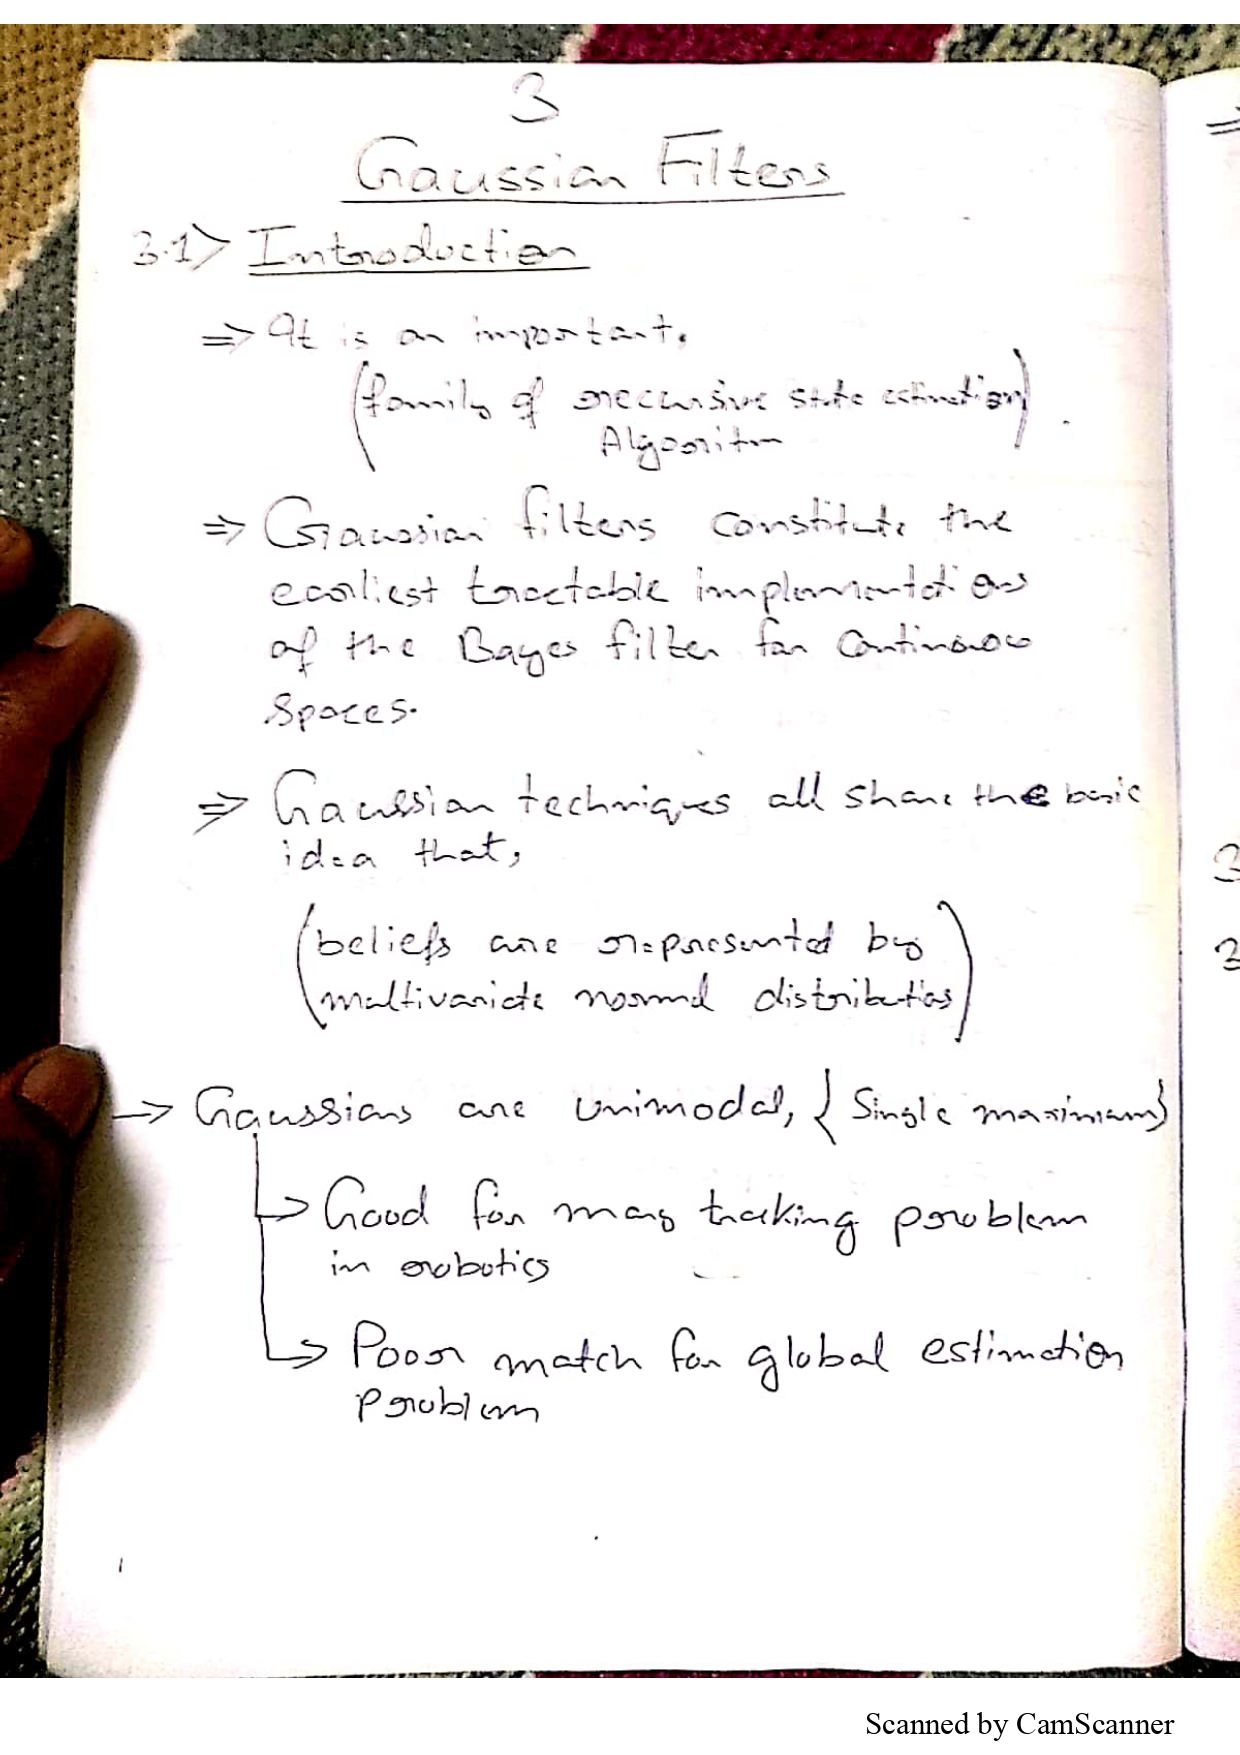 3
Gaussian Filters
3.1> Introduction
⇒ It is an important,
(family of recursive state estimation
Algoritm)
⇒ Gaussian filters constitute the
earliest tractable implementations
of the Bayes filter for Continuous
Spaces.
⇒ Gaussian techniques all share the basic
idea that,
(beliefs are represented by
multivariate normal distributions)
→ Gaussians are unimodal, {Single maximum}
→ Good for many tracking problem
in robotics
→ Poor match for global estimation
problem
⇒
3
3
Scanned by CamScanner